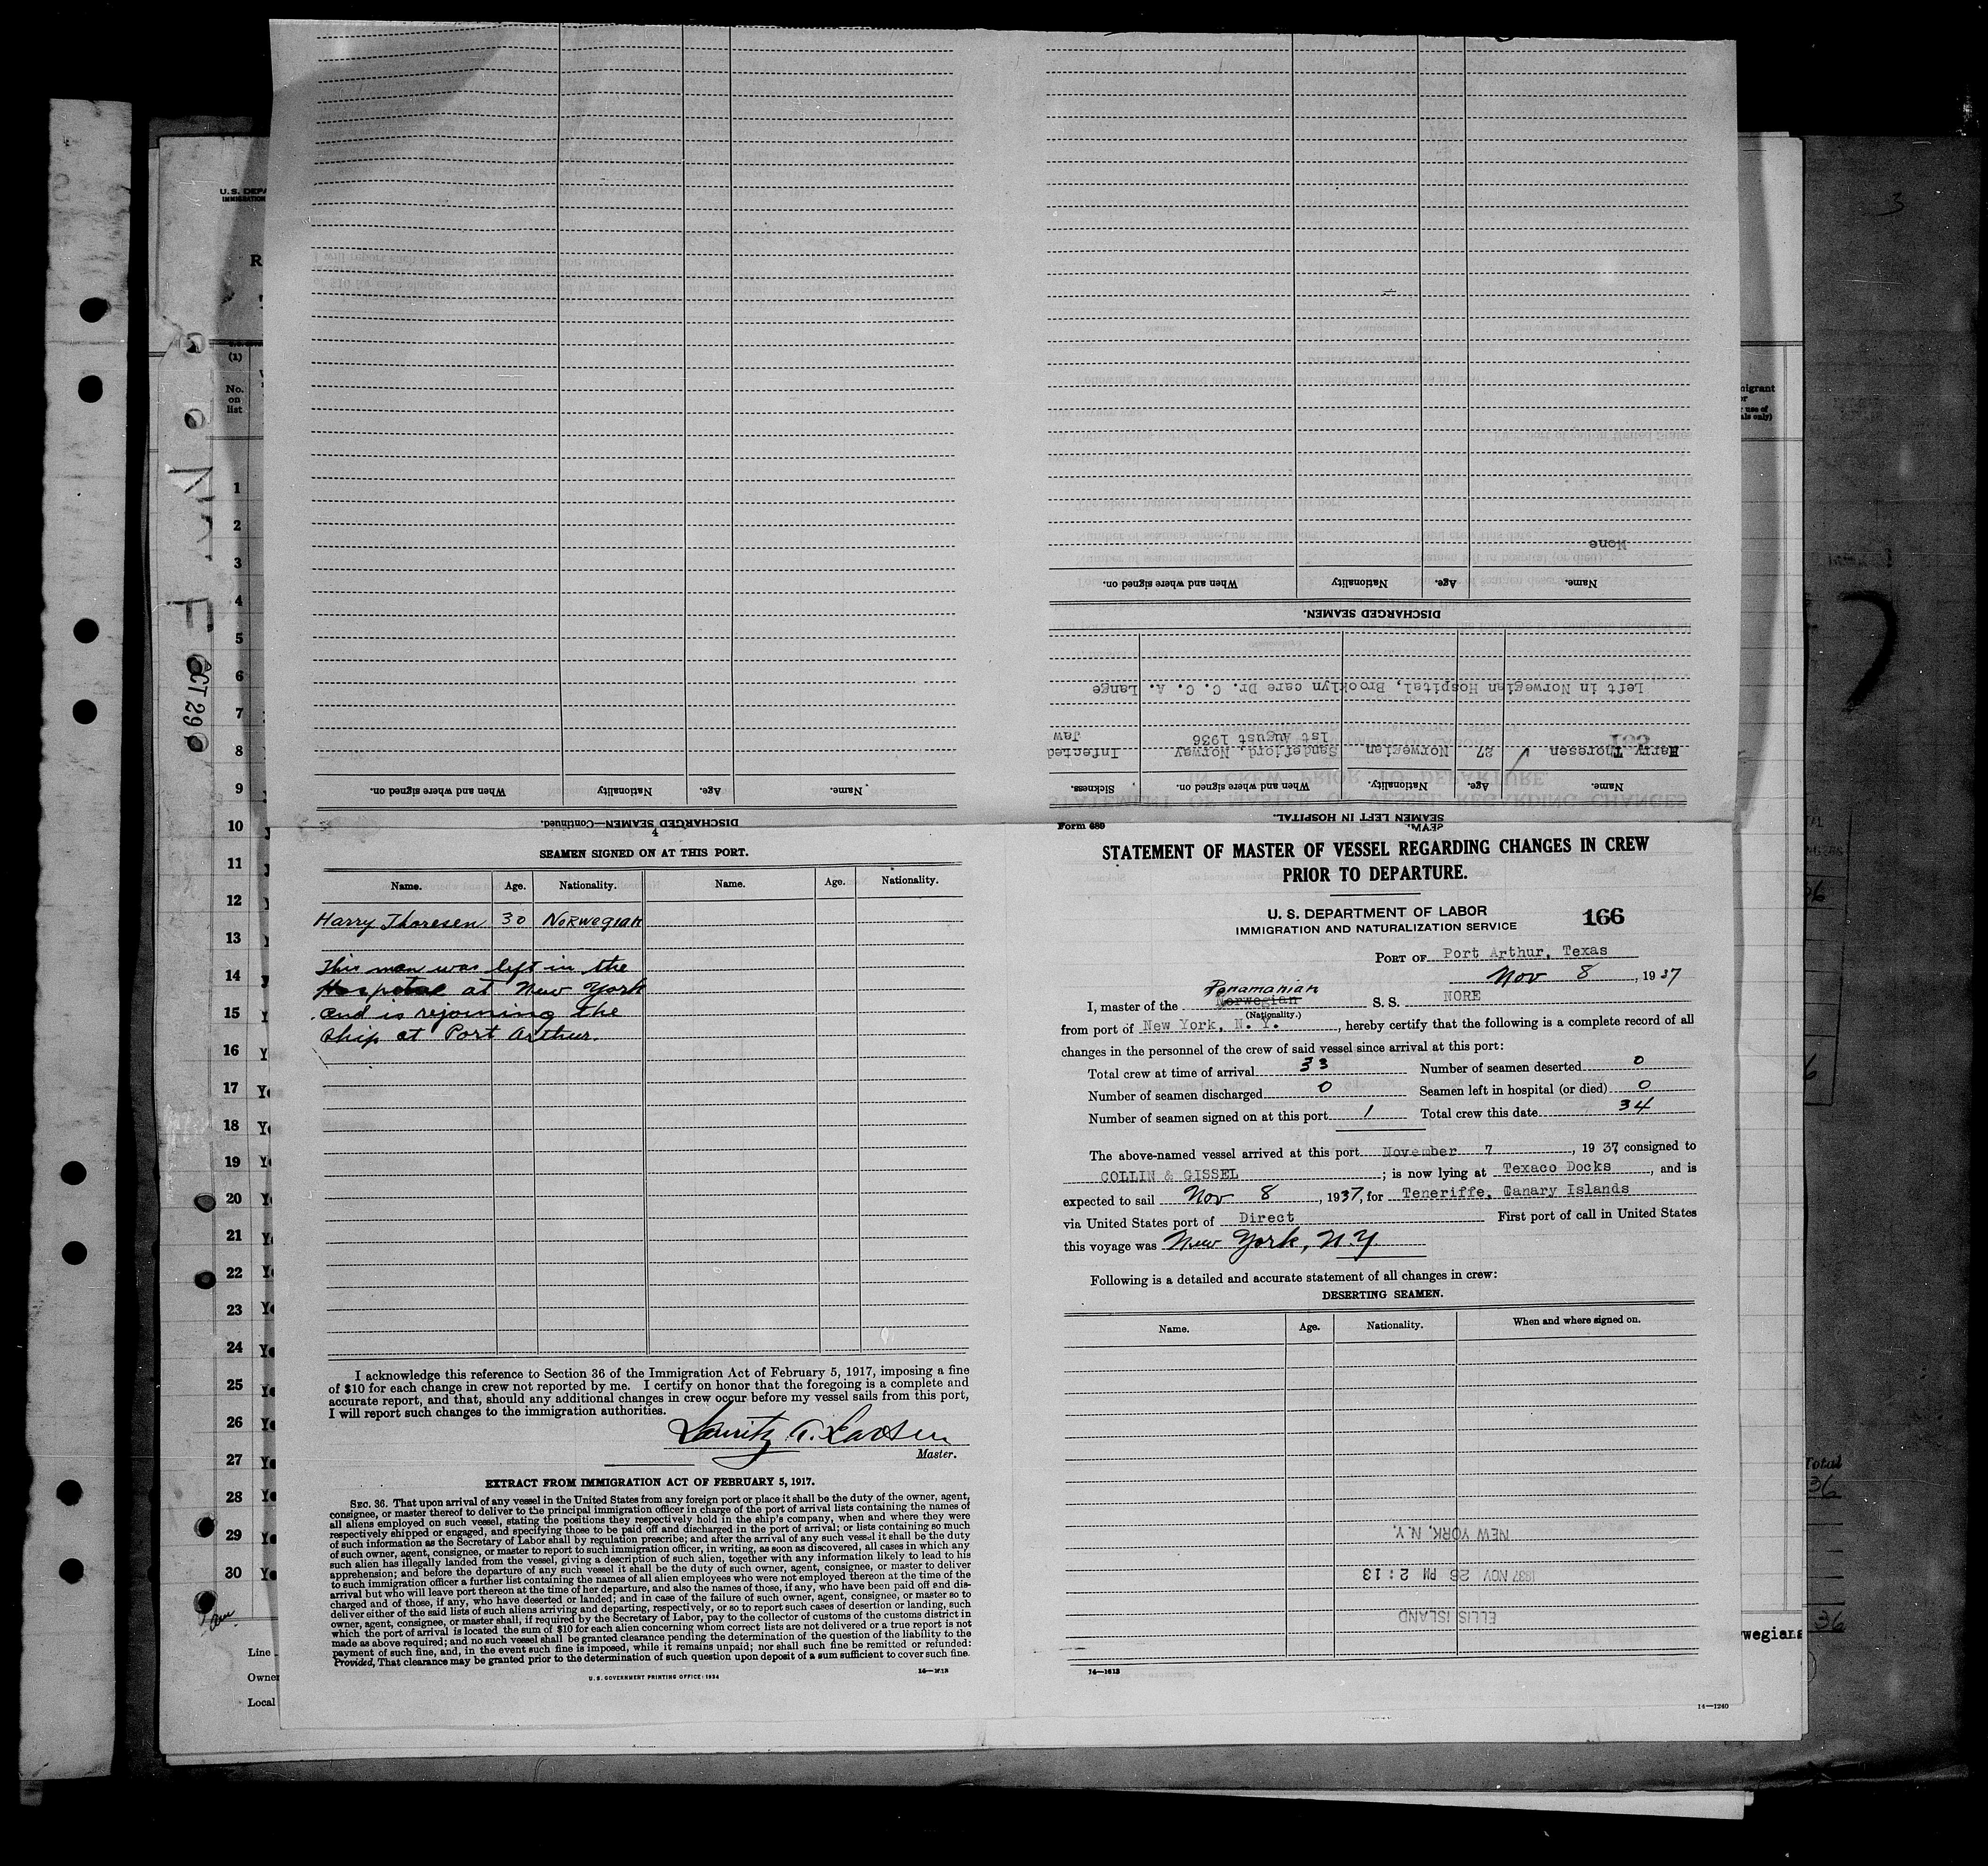 U.S. DEPA
IMMIGRATION
R
(1)
No.
on
list
1
2
3
4
5
6
7
8
9
10
11
12
13
14
15
16
17
18
19
20
21
22
23
24
25
26
27
28
29
30
Line
Owner
Local
OCT 29
DISCHARGED SEAMEN—Continued.
Name. Age. Nationality When and where signed on.
SEAMEN LEFT IN HOSPITAL.
Name. Age. Nationality. When and where signed on. Sickness.
Harry Thoresen 27 Norwegian Sandefjord, Norway Infected
1st August 1936 Jaw
Left in Norwegian Hospital, Brooklyn care Dr. C. C. A. Lange
DISCHARGED SEAMEN.
Name. Age. Nationality When and where signed on.
None
4
SEAMEN SIGNED ON AT THIS PORT.
Name. Age. Nationality. Name. Age. Nationality.
Harry Thoresen 30 Norwegian
This man was left in the
Hospital at New York
and is rejoining the
ship at Port Arthur.
I acknowledge this reference to Section 36 of the Immigration Act of February 5, 1917, imposing a fine
of $10 for each change in crew not reported by me. I certify on honor that the foregoing is a complete and
accurate report, and that, should any additional changes in crew occur before my vessel sails from this port,
I will report such changes to the immigration authorities.
Lauritz A. Larsen
Master.
EXTRACT FROM IMMIGRATION ACT OF FEBRUARY 5, 1917.
SEC. 36. That upon arrival of any vessel in the United States from any foreign port or place it shall be the duty of the owner, agent,
consignee, or master thereof to deliver to the principal immigration officer in charge of the port of arrival lists containing the names of
all aliens employed on such vessel, stating the positions they respectively hold in the ship's company, when and where they were
respectively shipped or engaged, and specifying those to be paid off and discharged in the port of arrival; or lists containing so much
of such information as the Secretary of Labor shall by regulation prescribe; and after the arrival of any such vessel it shall be the duty
of such owner, agent, consignee, or master to report to such immigration officer, in writing, as soon as discovered, all cases in which any
such alien has illegally landed from the vessel, giving a description of such alien, together with any information likely to lead to his
apprehension; and before the departure of any such vessel it shall be the duty of such owner, agent, consignee, or master to deliver
to such immigration officer a further list containing the names of all alien employees who were not employed thereon at the time of the
arrival but who will leave port thereon at the time of her departure, and also the names of those, if any, who have been paid off and dis-
charged and of those, if any, who have deserted or landed; and in case of the failure of such owner, agent, consignee, or master so to
deliver either of the said lists of such aliens arriving and departing, respectively, or so to report such cases of desertion or landing, such
owner, agent, consignee, or master shall, if required by the Secretary of Labor, pay to the collector of customs of the customs district in
which the port of arrival is located the sum of $10 for each alien concerning whom correct lists are not delivered or a true report is not
made as above required; and no such vessel shall be granted clearance pending the determination of the question of the liability to the
payment of such fine, and, in the event such fine is imposed, while it remains unpaid; nor shall such fine be remitted or refunded:
Provided, That clearance may be granted prior to the determination of such question upon deposit of a sum sufficient to cover such fine.
U. S. GOVERNMENT PRINTING OFFICE: 1934
Form 689
STATEMENT OF MASTER OF VESSEL REGARDING CHANGES IN CREW
PRIOR TO DEPARTURE.
U. S. DEPARTMENT OF LABOR
IMMIGRATION AND NATURALIZATION SERVICE
166
PORT OF Port Arthur, Texas
Nov 8, 1937
Panamanian
I, master of the Norwegian S. S. NORE
(Nationality.)
from port of New York, N. Y., hereby certify that the following is a complete record of all
changes in the personnel of the crew of said vessel since arrival at this port:
Total crew at time of arrival 33 Number of seamen deserted 0
Number of seamen discharged 0 Seamen left in hospital (or died) 0
Number of seamen signed on at this port 1 Total crew this date 34
The above-named vessel arrived at this port November 7, 1937 consigned to
COLLIN & GISSEL; is now lying at Texaco Docks, and is
expected to sail Nov 8, 1937, for Teneriffe, Canary Islands
via United States port of Direct First port of call in United States
this voyage was New York, N.Y.
Following is a detailed and accurate statement of all changes in crew:
DESERTING SEAMEN.
Name. Age. Nationality. When and where signed on.
ELLIS ISLAND
1937 NOV 26 PM 2:13
NEW YORK, N.Y.
14—1613
14—1240
3
Total
36
36
wegians